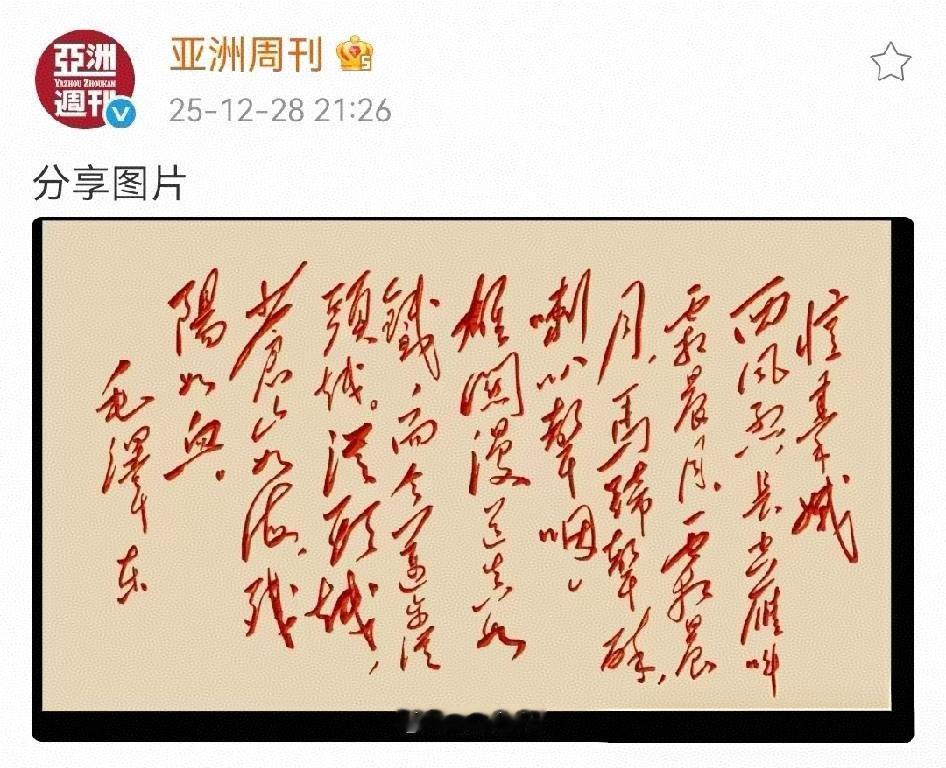 亞洲
YAZHOU ZHOUKAN
週刊
亚洲周刊
25-12-28 21:26
分享图片
憶秦娥
西风烈,長空雁叫
霜晨月。霜晨
月,馬蹄聲碎,
喇叭聲咽。
雄關漫道真如
鐵,而今邁步從
頭越。從頭越,
蒼山如海,残
陽如血。
毛澤东